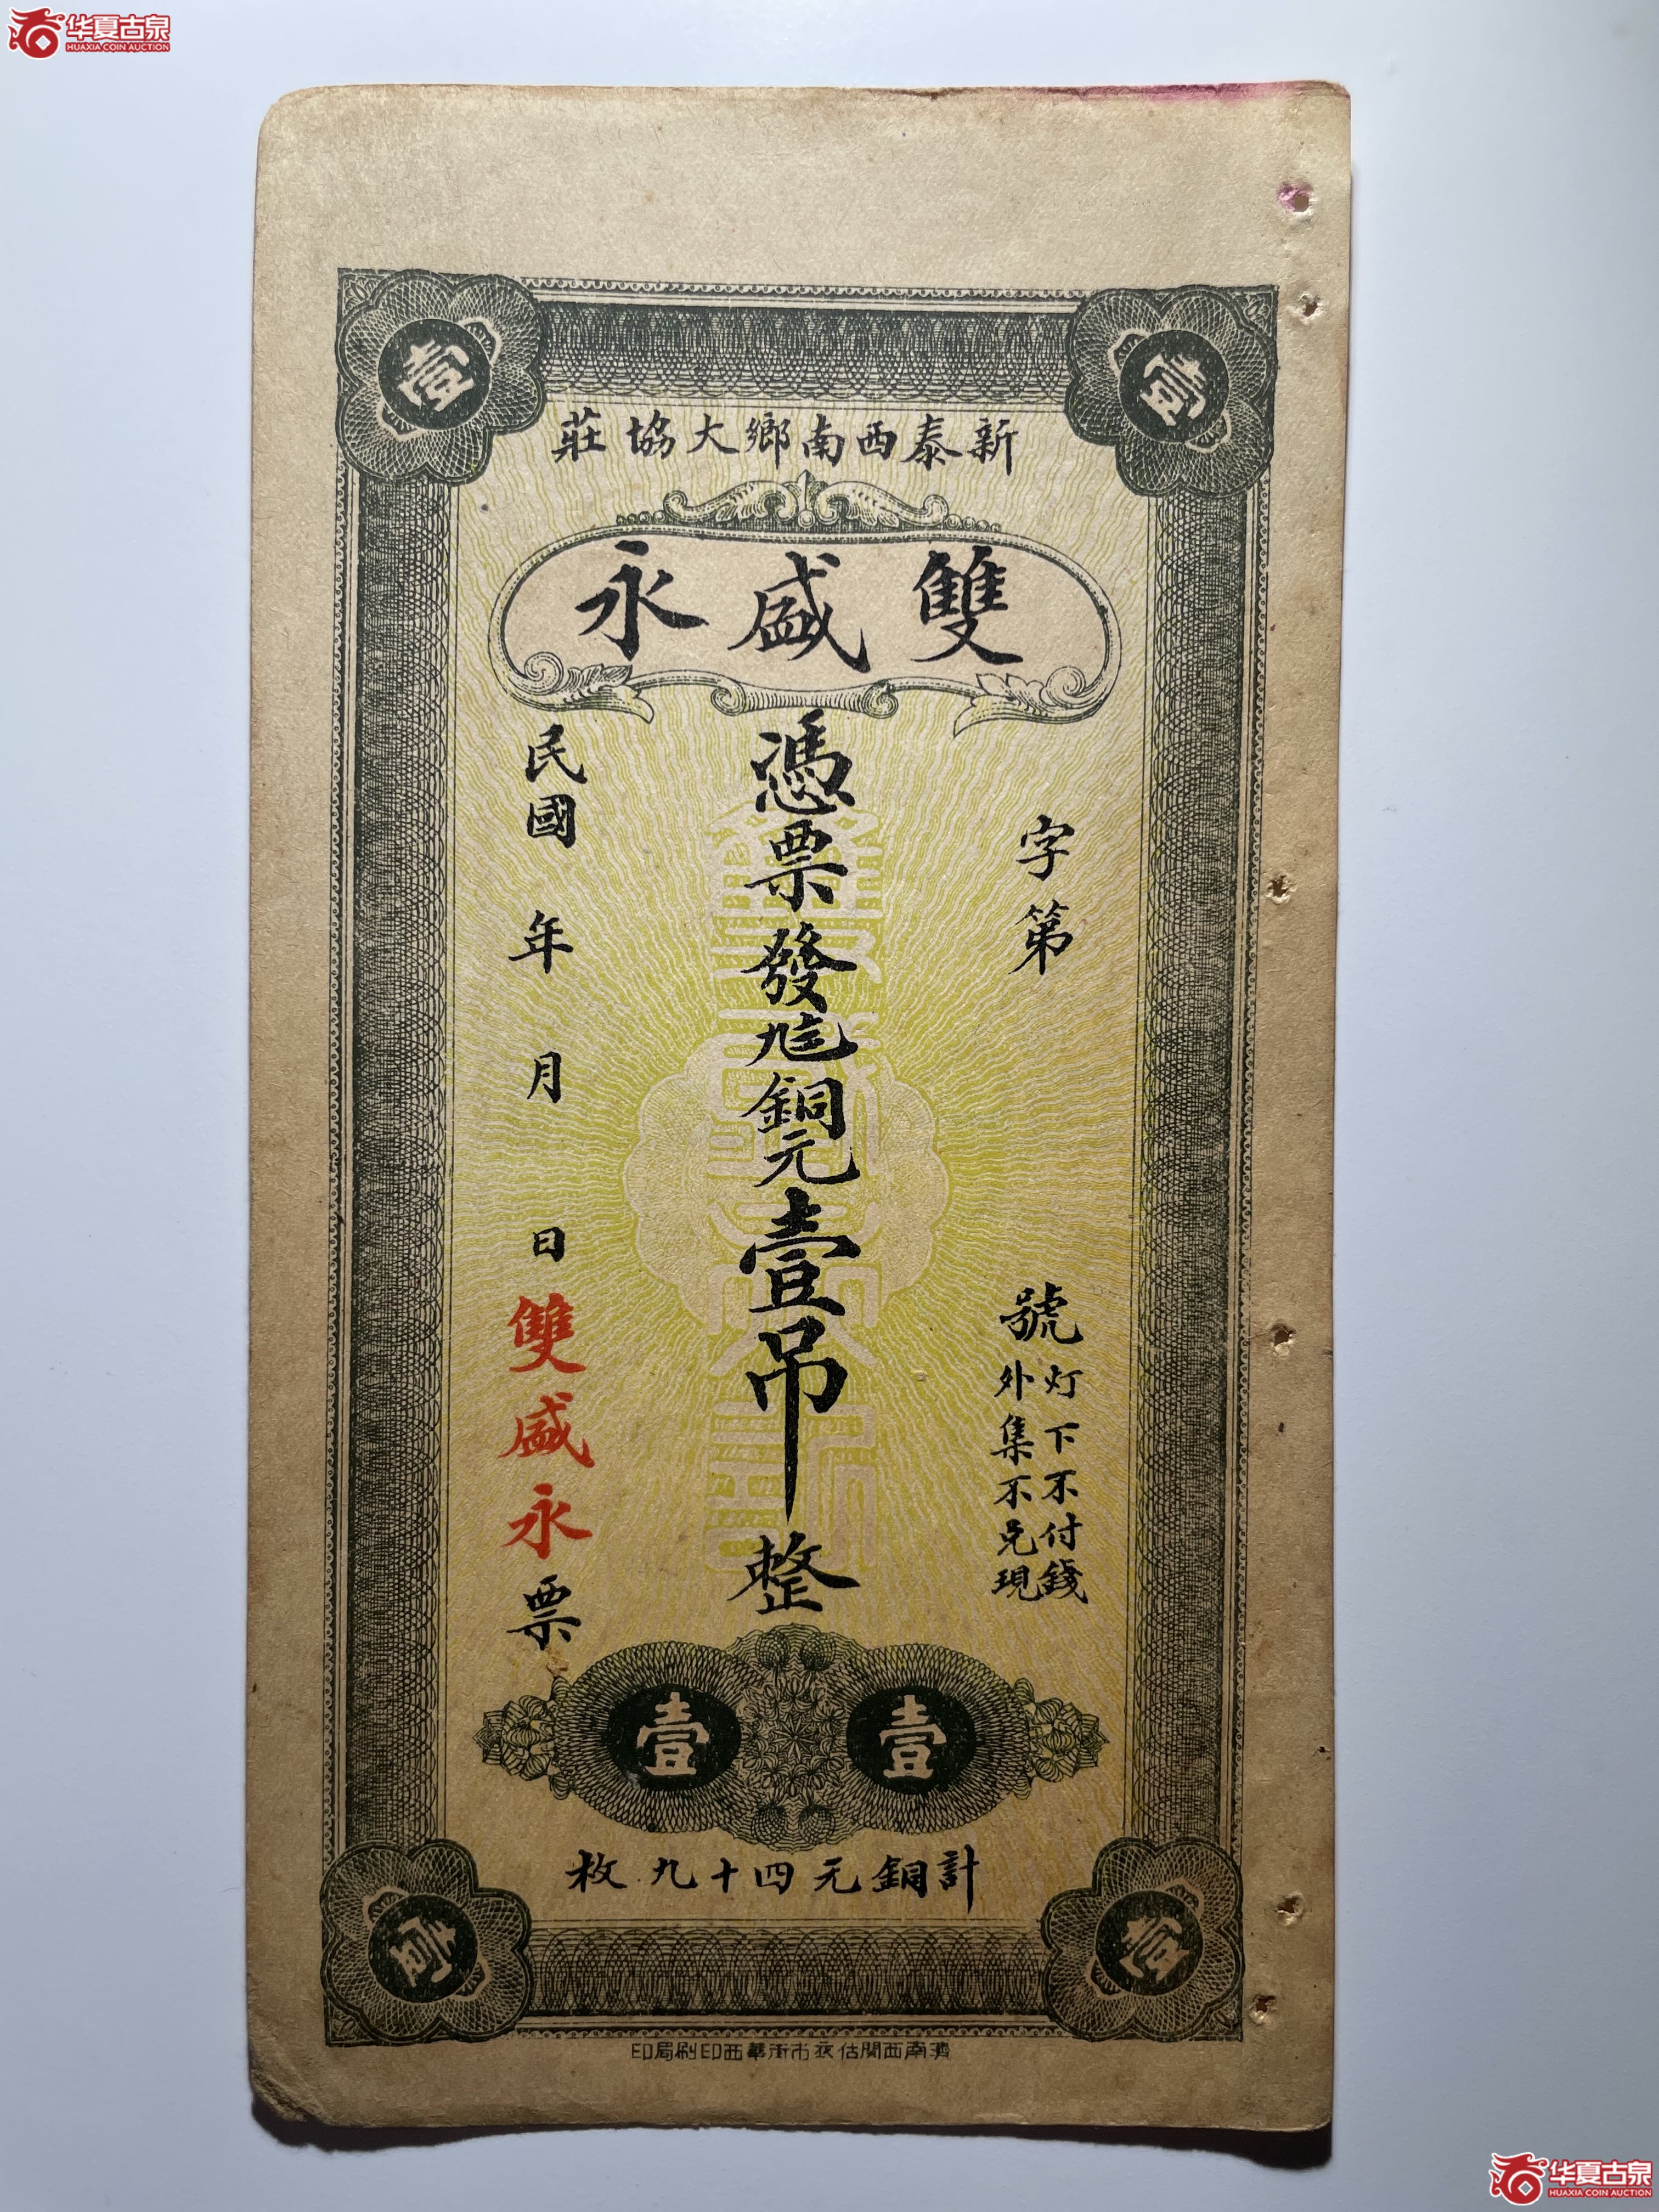 华夏古泉
HUAXIA COIN AUCTION
壹
壹
新泰西南鄉大協莊
雙盛永
字第
號
灯下不付錢
外集不兌現
憑票發
銅元壹吊整
民國
年
月
日
雙盛永票
壹
壹
計銅元四十九枚
壹
壹
濟南西關估衣市街華西印刷局印
华夏古泉
HUAXIA COIN AUCTION